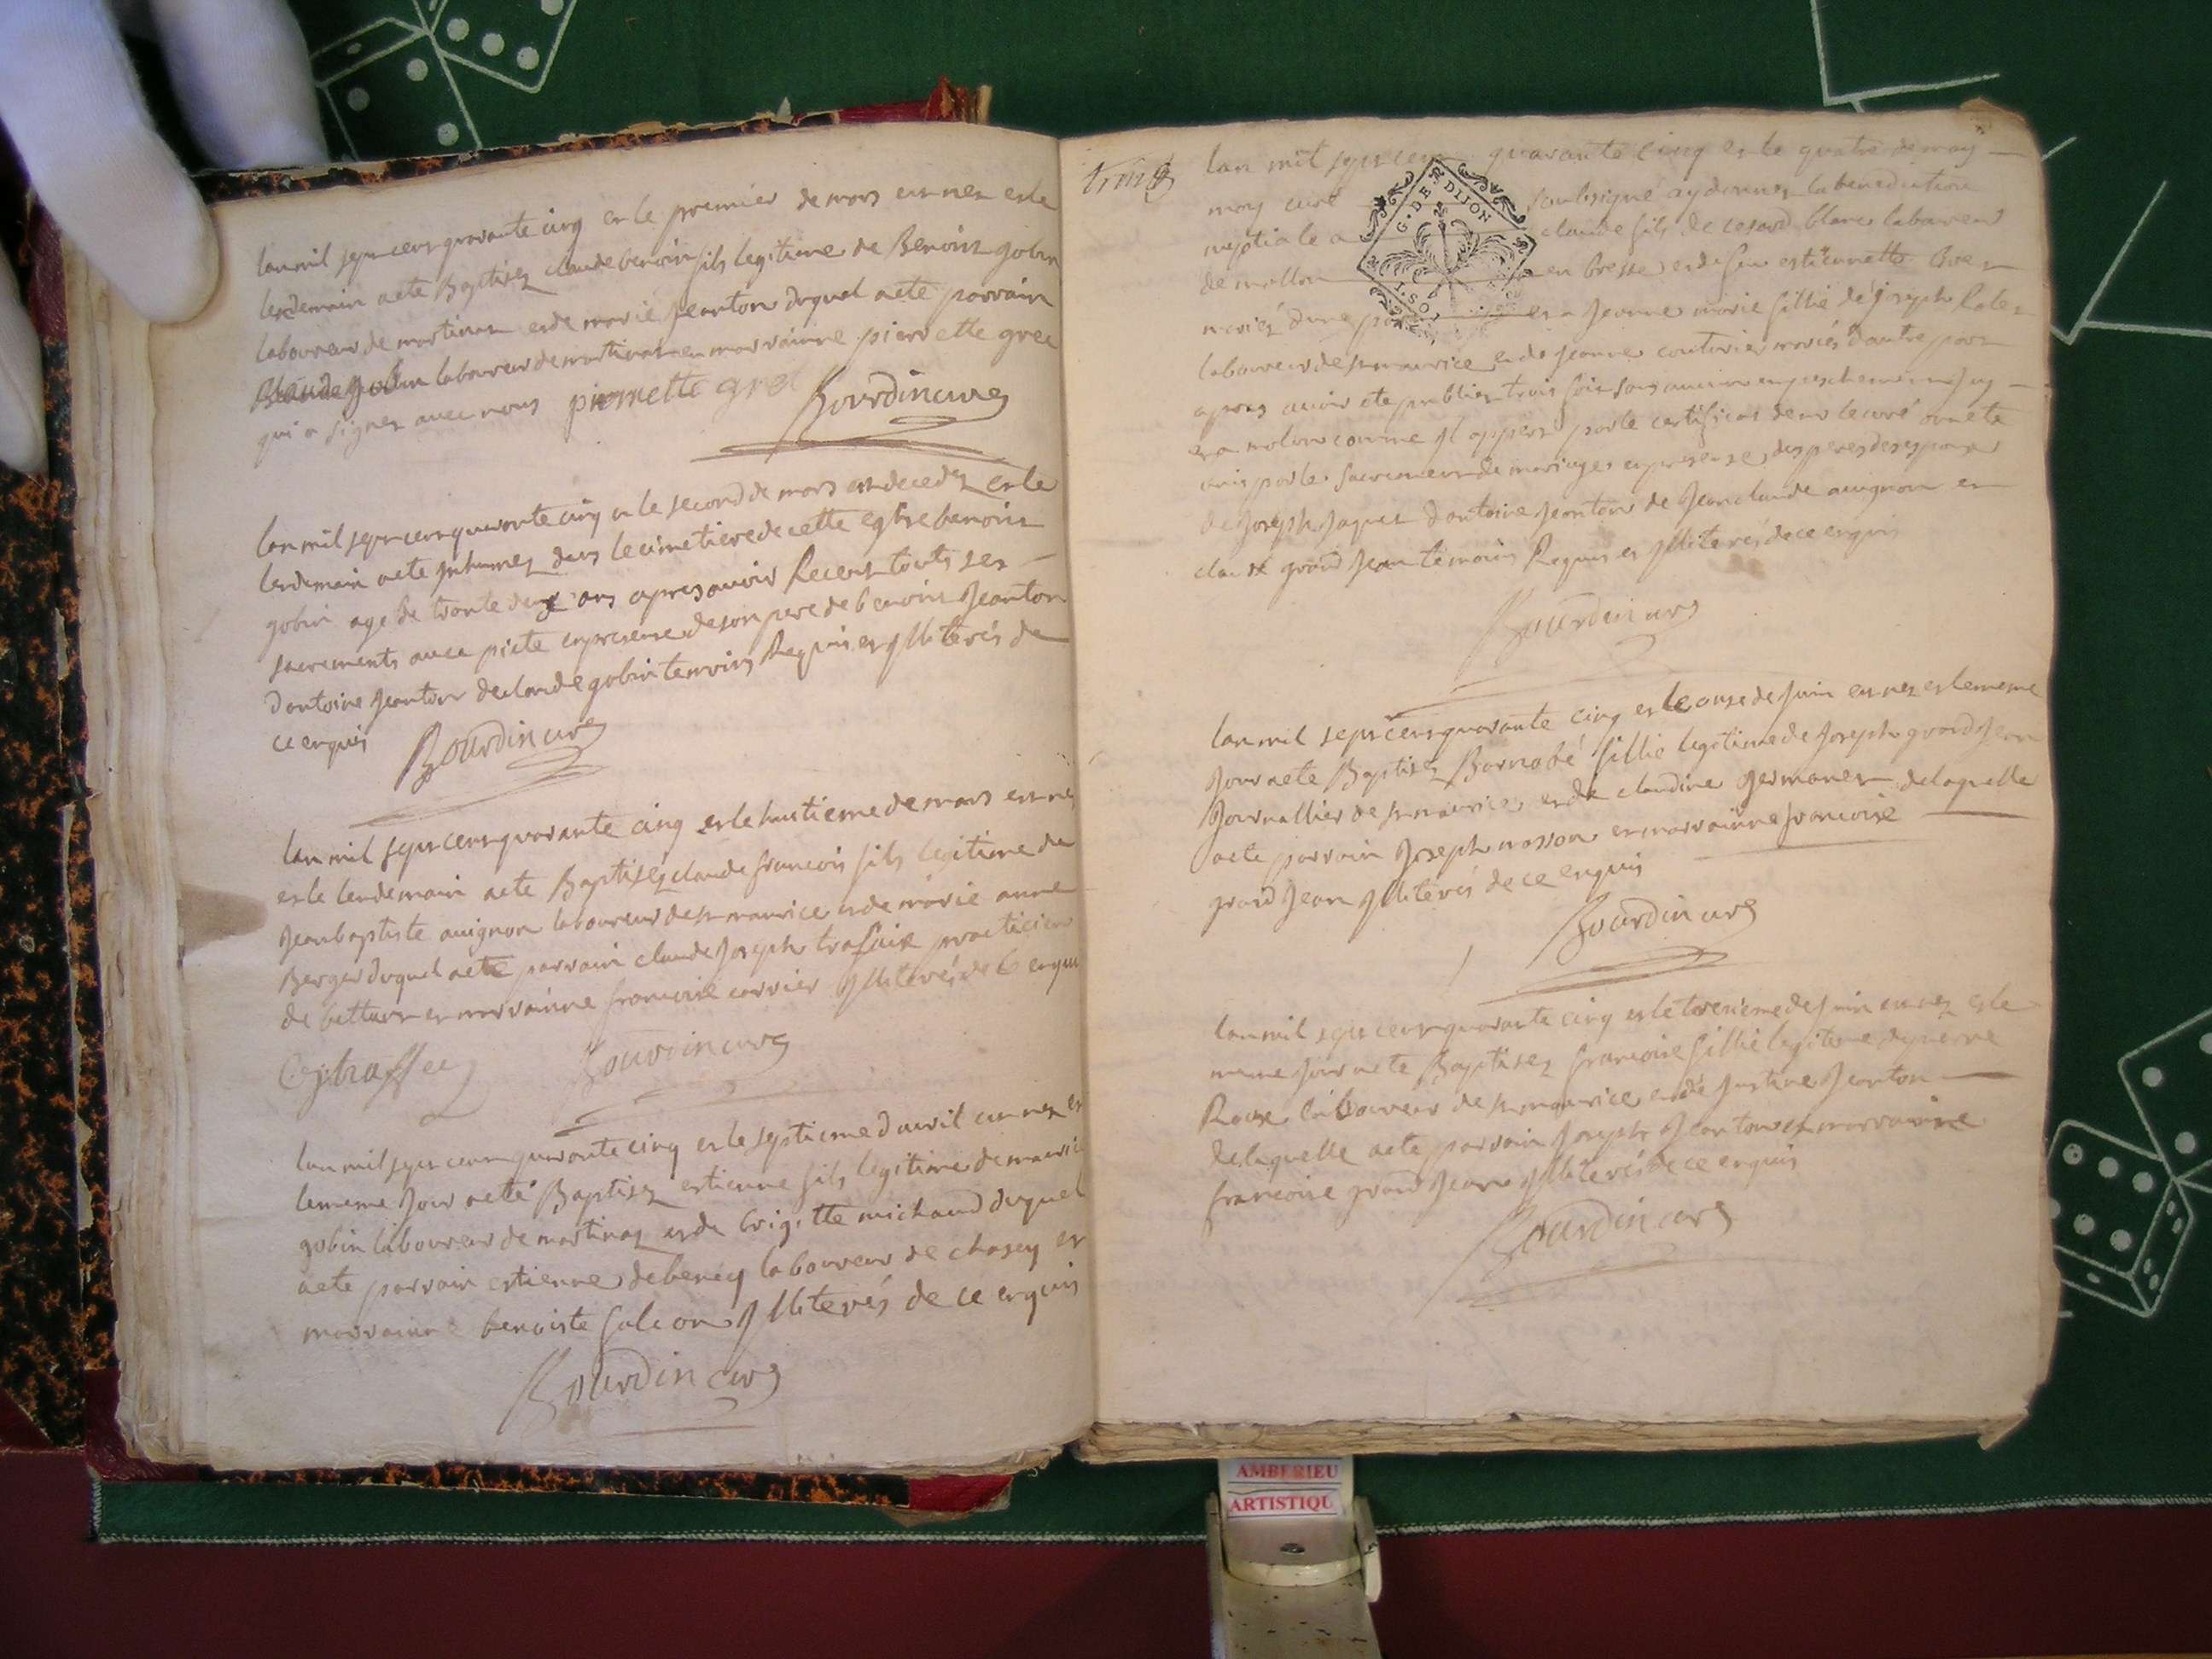 lan mil sept cent quarante cinq et le premier de mars est nez et le
lendemain a ete Baptisez claude benoin fils legitime de Benoist gobin
laboureur de martinas et de marie jeanton duquel a ete parrain
claude gobin laboureur de martinas et marrainne pierrette gret
qui a signez avec nous pierrette gret
Bourdin curé
lan mil sept cent quarante cinq et le second de mars est decedez et le
lendemain a ete Inhumez dans le cimetiere de cette eglise benoist
gobin agé de trante deux ans apres avoir Receus touts ses
sacrements avec pieté en presense de son pere de benoist Jeanton
dantoine Jeanton de claude gobin temoins Requis et Illiterés de
ce enquis
Bourdin curé
lan mil sept cent quarante cinq et le huitieme de mars est nez
et le lendemain a ete Baptisez claude francois fils legitime de
Jean baptiste avignon laboureur de st maurice et de marie anne
Berger duquel a ete parrain claude Joseph practicien
de bettant et marrainne francoise carrier Illiterés de ce enquis
Bourdin curé
lan mil sept cent quarante cinq et le septieme davril est nez et
le meme Jour a eté Baptisez estienne fils legitime de maurice
gobin laboureur de martinas et de brigitte michaud duquel
a ete parrain estienne debeney laboureur de chasey et
marrainne benoiste falcon Illiterés de ce enquis
Bourdin curé
lan mil sept cent quarante cinq et le quatre de may
moy curé soubsigné ay donnez la benediction
nuptiale a claude fils de cesard blanc laboureur
de mollon en bresse et de feu estiennette
mariés dune part et a Jeanne marie fillie de joseph
laboureur de st maurice et de Jeanne couturier mariés dautre part
apres avoir ete publiez trois fois sans aucun empeschement Icy
et a molon comme Il appert par le certificat de mr le curé ont ete
unis par le sacrement de mariage en presense des peres des espoux
de Joseph Jaquet dantoine Jeanton de Jean claude avignon et
claude grand Jean temoins Requis et Illiterés de ce enquis
Bourdin curé
G. DE DIJON
lan mil sept cent quarante cinq et le onze de Juin est nez et le meme
Jour a ete Baptisez Barnabé fillie legitime de Joseph grand Jean
Journallier de st maurice et de claudine germanet de laquelle
a ete parrain Joseph masson et marrainne francoise
grand Jean Illiterés de ce enquis
Bourdin curé
lan mil sept cent quarante cinq et le tresieme de Juin est nez et le
meme Jour a ete Baptisez francoise fillie legitime de pierre
Roux laboureur de st maurice et de Justine Jeanton
de laquelle a ete parrain Joseph Jeanton et marrainne
francoise grand Jean Illiterés de ce enquis
Bourdin curé
AMBERIEU
ARTISTIQU